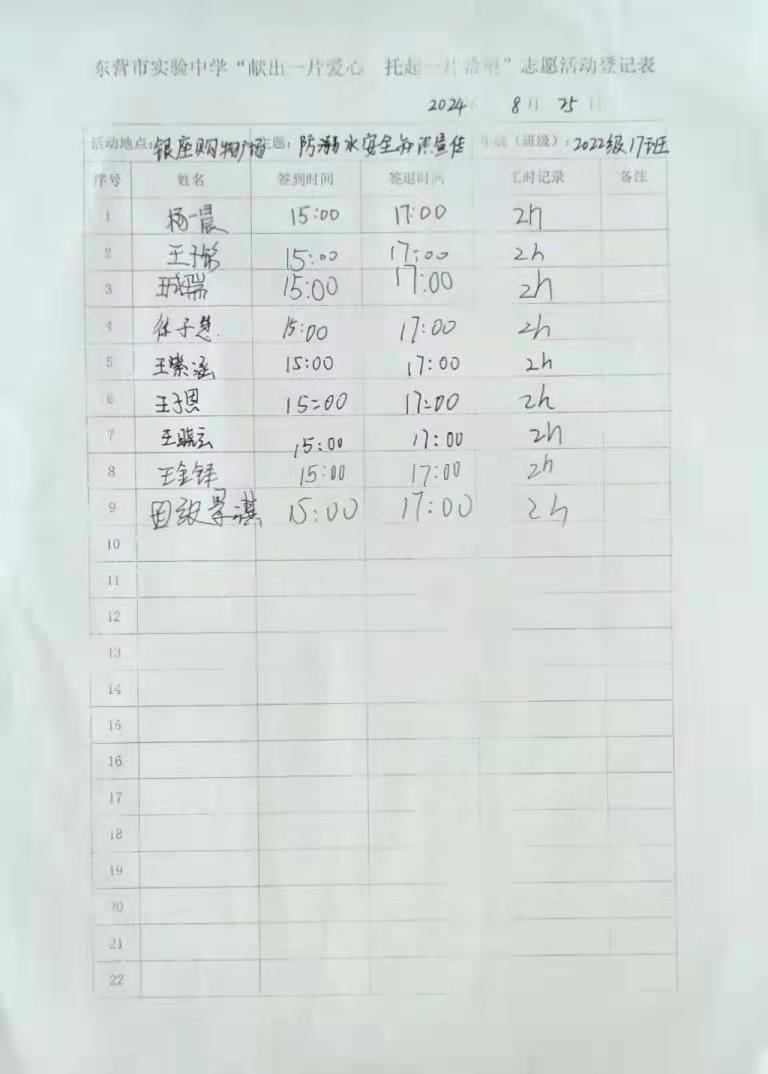 东营市实验中学“献出一片爱心 托起一片希望”志愿活动登记表
2024年 8月 25日
活动地点:银座购物广场 主题:防溺水安全知识宣传 年级(班级):2022级17班
序号 姓名 签到时间 签退时间 工时记录 备注
1 杨一晨 15:00 17:00 2h
2 王子铭 15:00 17:00 2h
3 15:00 17:00 2h
4 徐子慧 15:00 17:00 2h
5 王紫涵 15:00 17:00 2h
6 王子恩 15:00 17:00 2h
7 王晓云 15:00 17:00 2h
8 王金铎 15:00 17:00 2h
9 15:00 17:00 2h
10
11
12
13
14
15
16
17
18
19
20
21
22